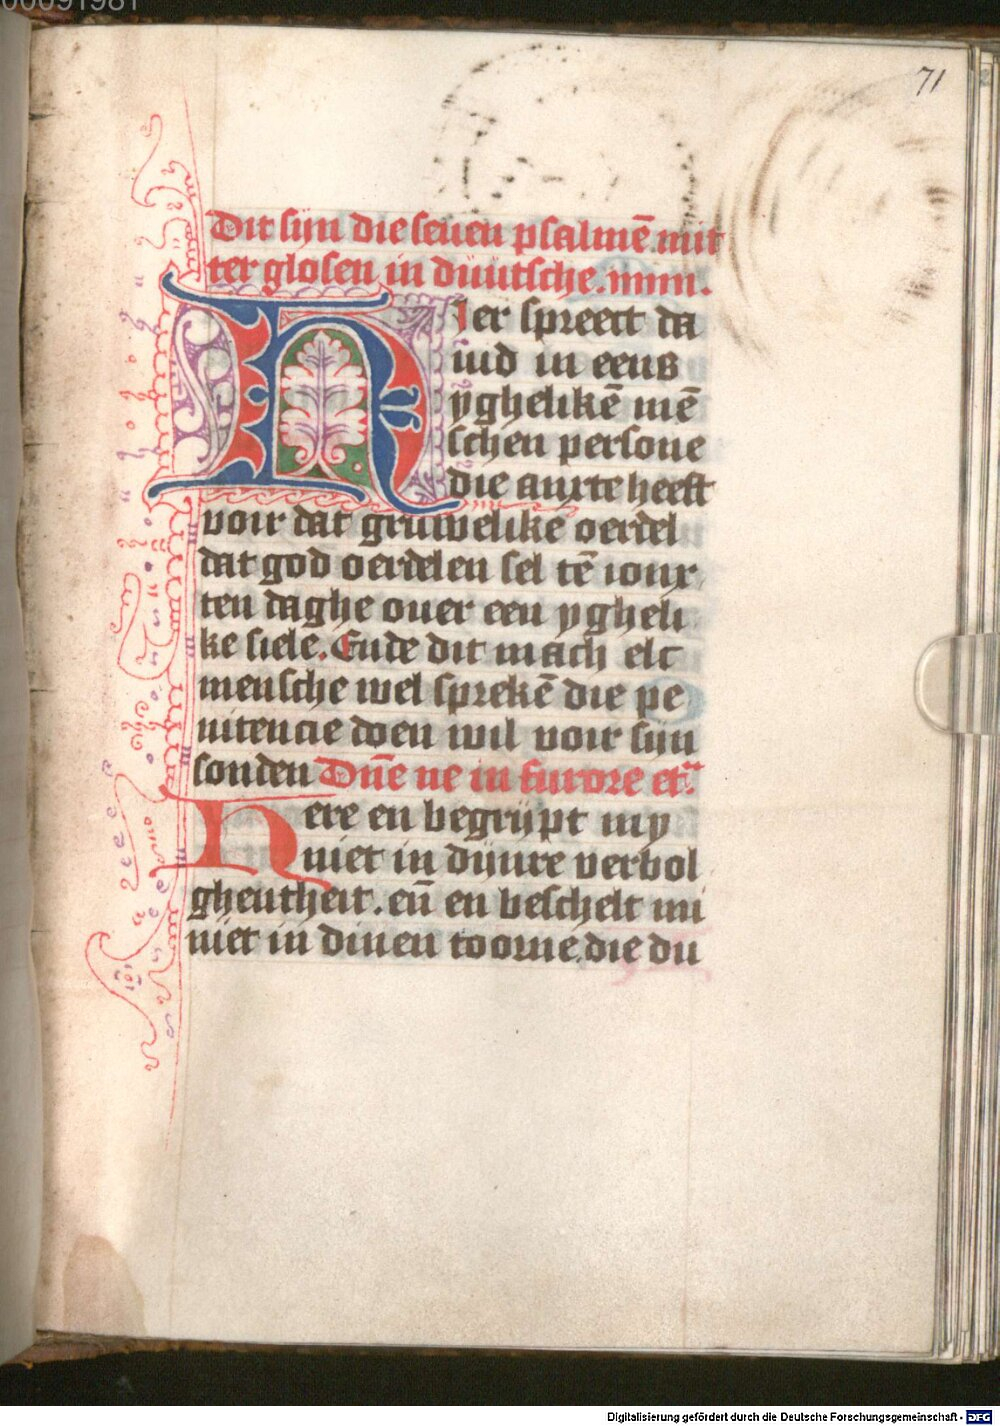 00091981
71
Dit sijn die seuen psalmē mit
ter glosen in duutsche. mm.
Hier spreect da
uid in eens
ygheliken mē
schen persone
die anxte heeft
voir dat gruwelike oerdel
dat god oerdelen sel tē ionx
ten daghe ouer een ygheli
ke siele. Ende dit mach elc
mensche wel sprekē die pe
nitencie doen wil voir sijn
sonden Dn̄e ne in furore et̄
Here en begrijpt my
niet in dijnre verbol
ghentheit. eñ en beschelt mi
niet in dinen toorne. die du
Digitalisierung gefördert durch die Deutsche Forschungsgemeinschaft - DFG